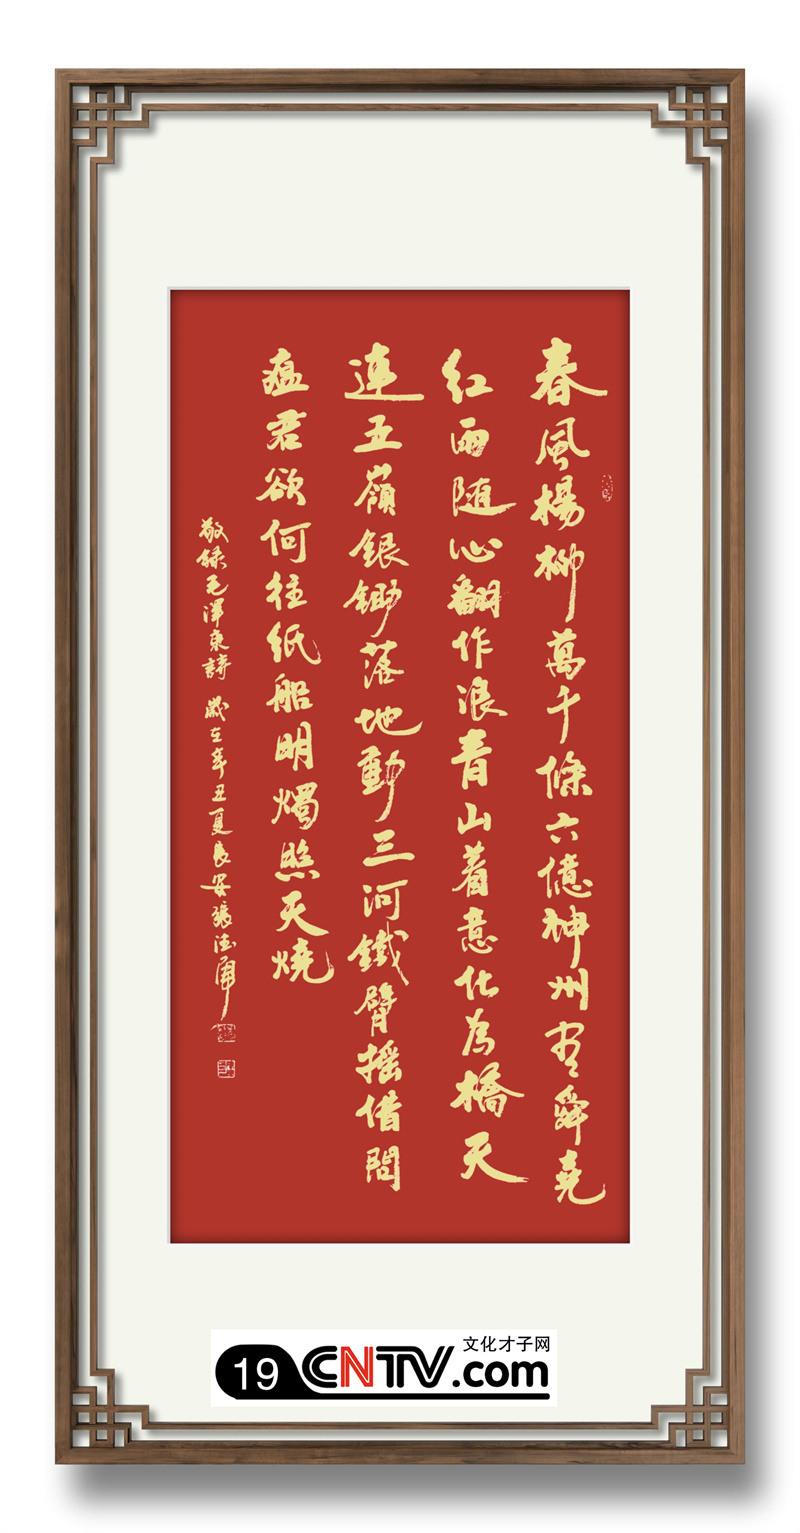 春風楊柳萬千條六億神州盡舜堯
红雨随心翻作浪青山着意化为橋天
連五嶺銀鋤落地動三河鐵臂摇借問
瘟君欲何往纸船明燭照天燒
敬録毛澤東詩 歲在辛丑夏長安張
文化才子网
19 CNTV.com